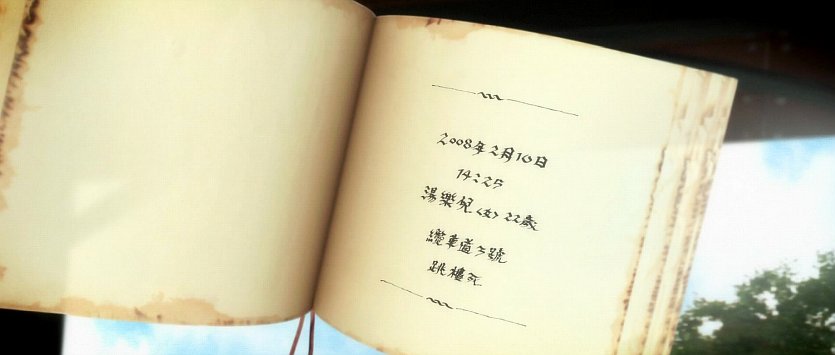 2008年2月16日
14:25
湯樂兒<女>22歲
纜車道3號
跳樓死